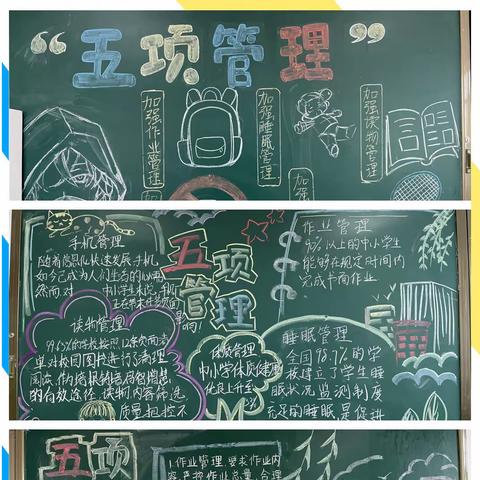 “五项管理”
加强作业管理
加强睡眠管理
加强读物管理
加
加强
手机管理
随着信息化快速发展,手机
如今已成为人们生活的
然而,对 中小学生来说,手机
正在带来许多负面
影响!
五项
管理
作业管理
90%以上的中小学生
能够在规定时间内
完成书面作业。
读物管理
99.6%的学校按照12条负面清
单对校园图书进行了清理
的有效途径 读物内容筛选
质量把控不
体质管理
中小学体质健康
优良上升至
睡眠管理
全国98.7%的学
校建立了学生睡
眠状况监测制度
充足的睡眠是促进
五项
1.作业管理,要求作业内
容,严控作业总量,合理